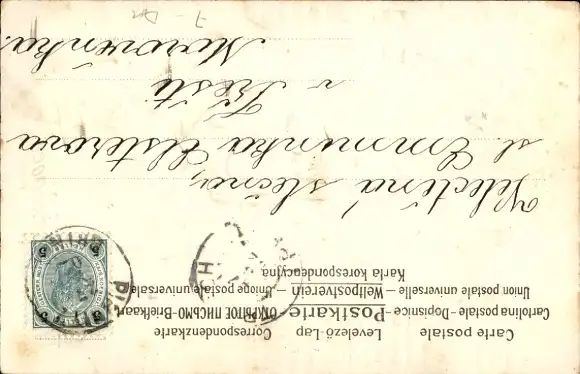 Carte postale Levelező-Lap Correspondenzkarte
Cartolina postale - Dopisnice - Postkarte - ОТКРЫТОЕ ПИСЬМО - Briefkaart
Union postale universelle - Weltpostverein - Unione postale universale
Karta korespondencyjna
5 5
Velectěná slečna,
sl. Emminka Elsterova
v Třešti
Moravěnka.